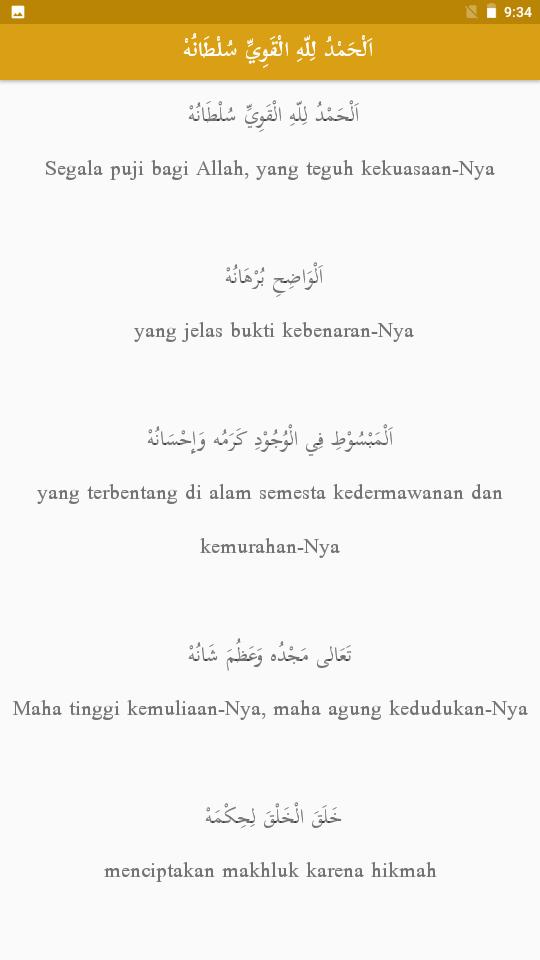 9:34
اَلْحَمْدُ لِلّهِ الْقَوِيِّ سُلْطَانُهْ
اَلْحَمْدُ لِلّهِ الْقَوِيِّ سُلْطَانُهْ
Segala puji bagi Allah, yang teguh kekuasaan-Nya
اَلْوَاضِحِ بُرْهَانُهْ
yang jelas bukti kebenaran-Nya
اَلْمَبْسُوْطِ فِي الْوُجُوْدِ كَرَمُه وَإِحْسَانُهْ
yang terbentang di alam semesta kedermawanan dan
kemurahan-Nya
تَعَالى مَجْدُه وَعَظُمَ شَانُهْ
Maha tinggi kemuliaan-Nya, maha agung kedudukan-Nya
خَلَقَ الْخَلْقَ لِحِكْمَهْ
menciptakan makhluk karena hikmah